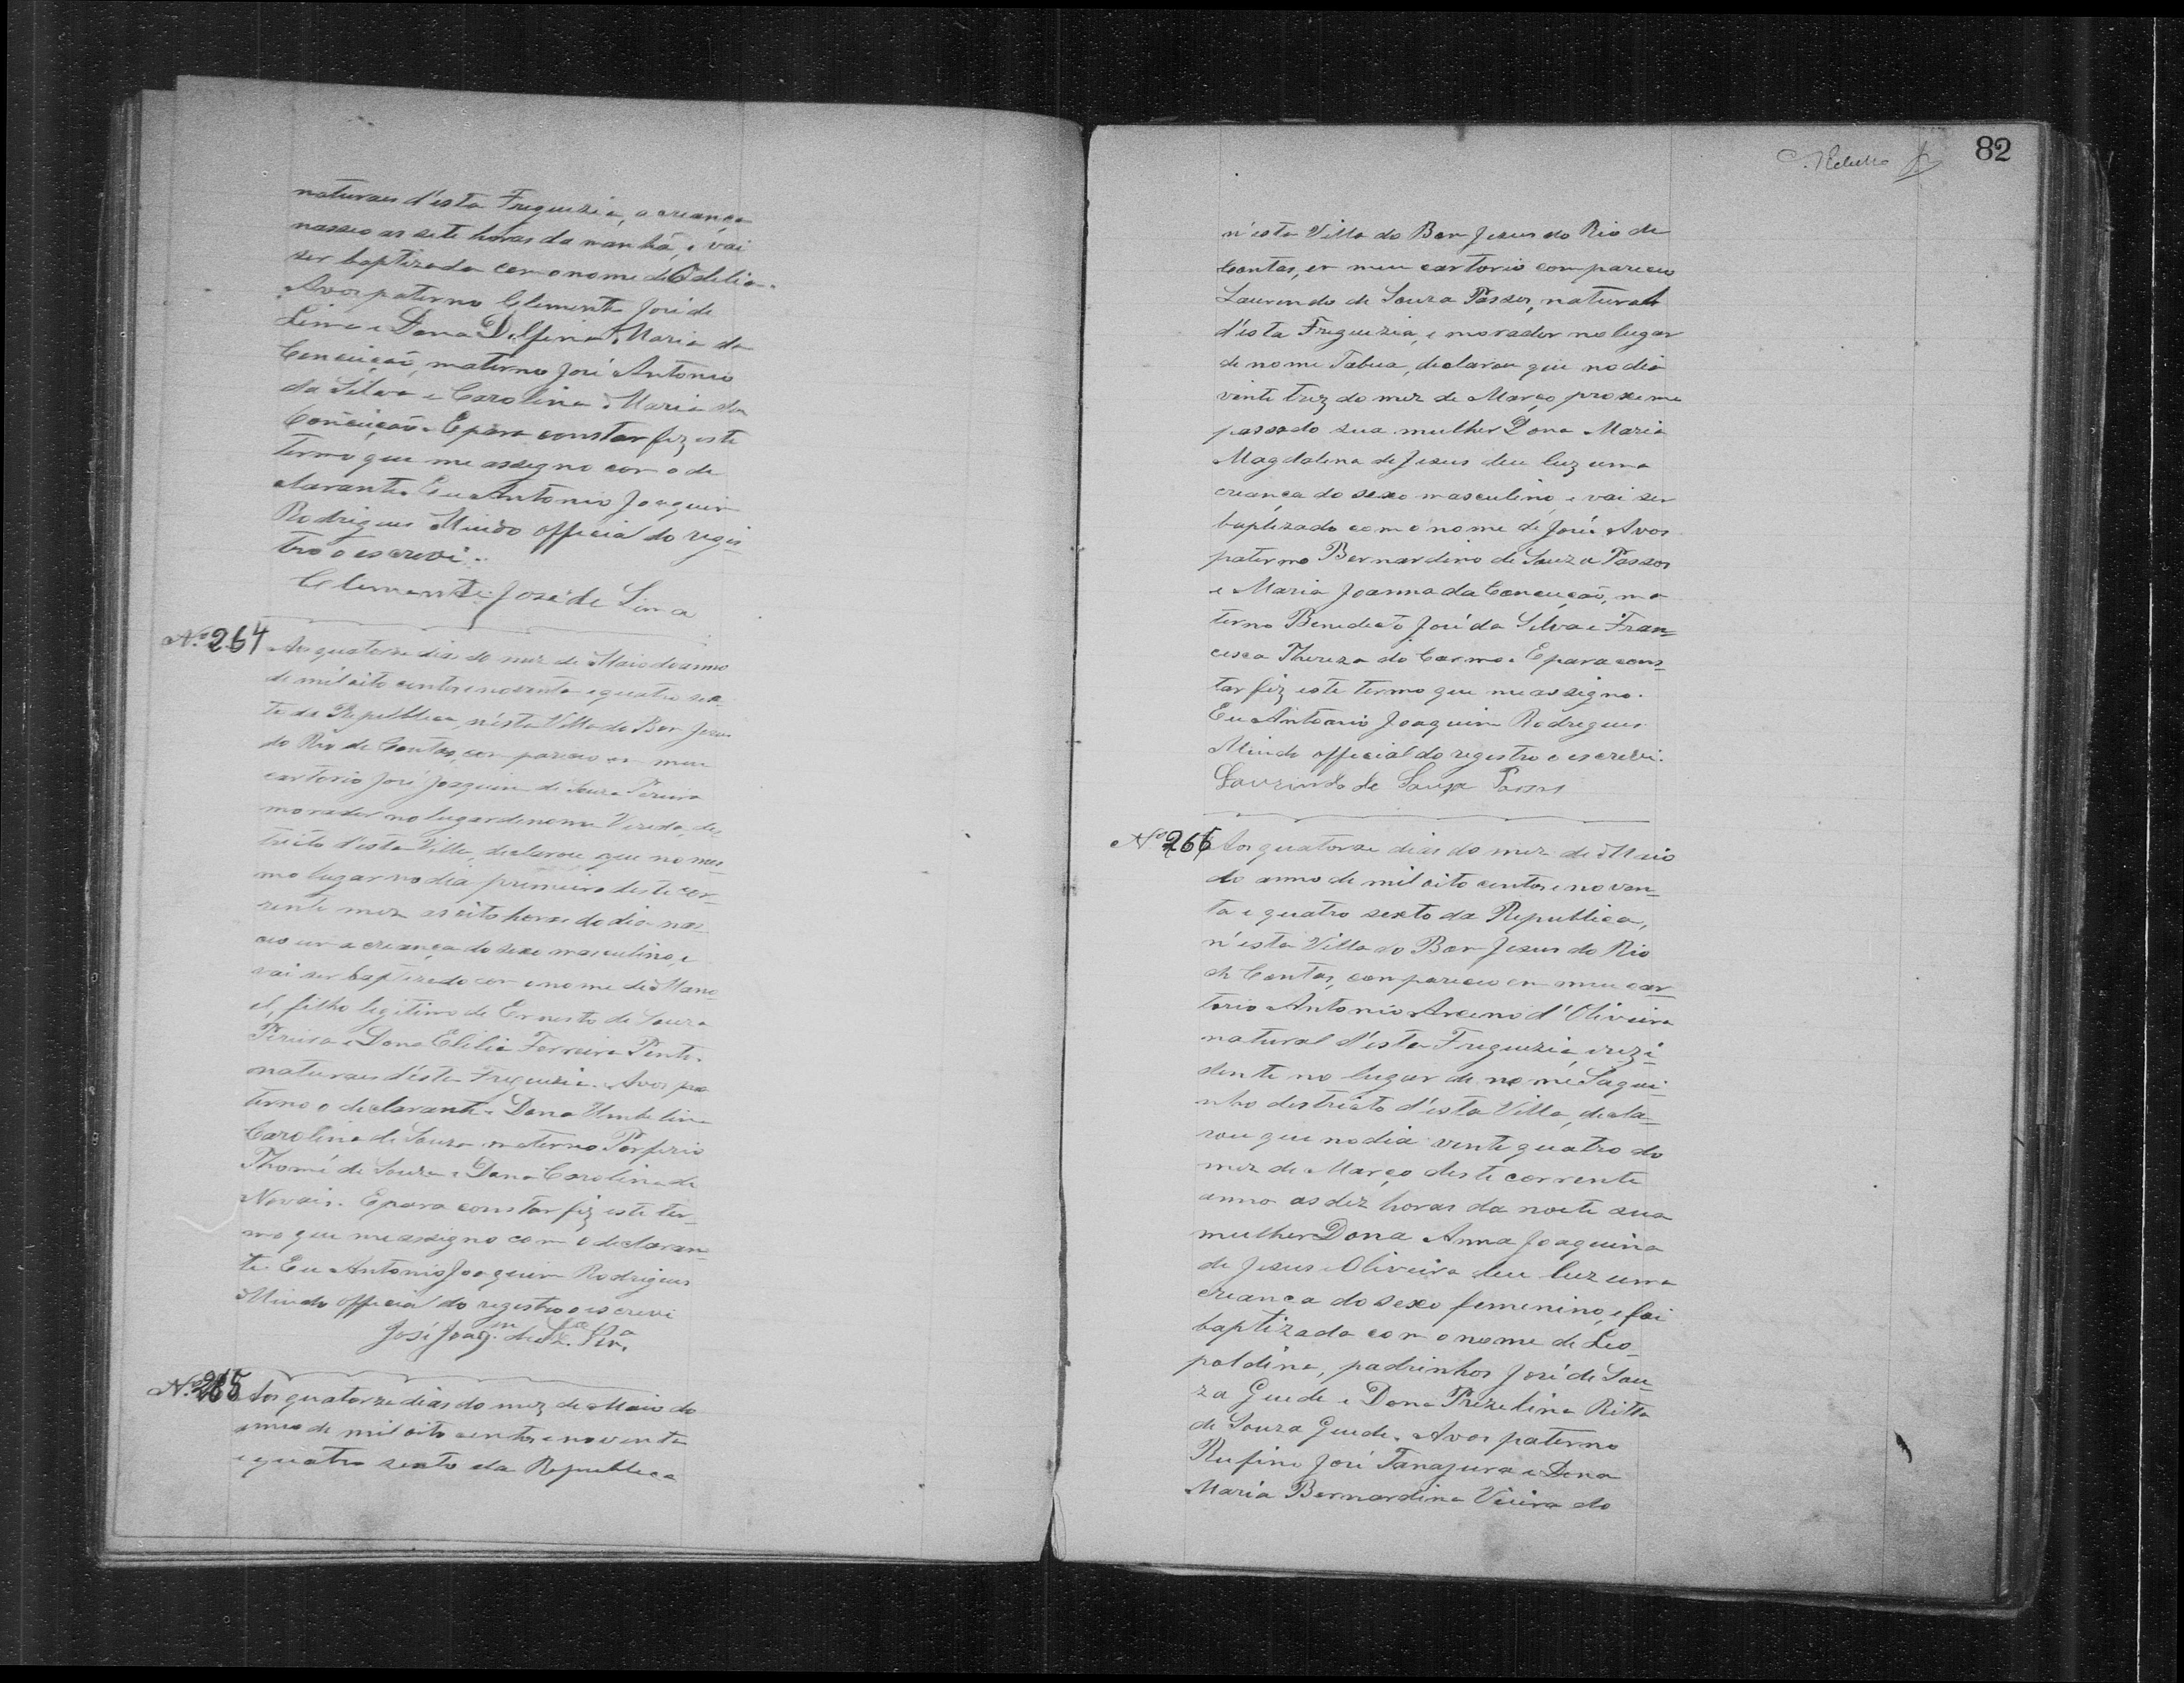 naturaes d'esta Freguezia, a creança
nasseo as sete horas da manhã, e vai
ser baptizada com o nome de Odelia.
Avos paterno Clemente José de
Lima e Dona Delfina Maria da
Conceição, materno José Antonio
da Silva e Carolina Maria da
Conceição. E para constar fiz este
termo que me assigno com o de
clarante. Eu Antonio Joaquim
Rodrigues Mindo official do regis-
tro o escrevi.
Clemente José de Lima
Nº 264 Aos quatorze dias do mez de Maio do anno
de mil oito centos e noventa e quatro sex-
to da Republica, n'esta Villa do Bom Jesus
do Rio de Contas, compareceo em meu
cartorio José Joaquim de Souza Pereira
morador no lugar de nome Vereda, des-
tricto d'esta Villa, declarou que no mes-
mo lugar no dia primeiro deste cor-
rente mez as oito horas do dia nas-
ceo uma creança do sexo masculino, e
vai ser baptizado com o nome de Mano
el, filho legitimo de Ernesto de Souza
Pereira e Dona Elilia Ferreira Pinto
naturaes d'esta Freguezia. Avos pa
terno o declarante e Dona Umbelina
Carolina de Souza materno Porfirio
Thomé de Souza e Dona Carolina de
Novais. E para constar fiz este ter-
mo que me assigno com o declaran-
te. Eu Antonio Joaquim Rodrigues
Mindo official do registro o escrevi
José Joaqm de Sza Pra
Nº 265 Aos quatorze dias do mez de Maio do
anno de mil oito centos e noventa
e quatro sexto da Republica
82
n'esta Villa do Bom Jesus do Rio de
Contas, em meu cartorio compareceo
Laurindo de Souza Passos, natural
d'esta Freguezia, e morador no lugar
de nome Tabua, declarou que no dia
vinte trez do mez de Março proximo
passado sua mulher Dona Maria
Magdalena de Jesus deu luz uma
creança do sexo masculino e vai ser
baptizado com o nome de José. Avos
paterno Bernardino de Souza Passos
e Maria Joanna da Conceição, ma
terno Benedicto José da Silva e Fran-
cisca Thereza do Carmo. E para cons-
tar fiz este termo que me assigno.
Eu Antonio Joaquim Rodrigues
Mindo official do registro o escrevi.
Laurindo de Souza Passos
Nº 266 Aos quatorze dias do mez de Maio
do anno de mil oito centos e noven-
ta e quatro sexto da Republica,
n'esta Villa do Bom Jesus do Rio
de Contas, compareceo em meu car-
torio Antonio Arceno d'Oliveira
natural d'esta Freguezia, e rezi-
dente no lugar de nome Sagui-
nho destricto d'esta Villa, decla-
rou que no dia vinte quatro do
mez de Março deste corrente
anno as dez horas da noite sua
mulher Dona Anna Joaquina
de Jesus e Oliveira deu luz uma
creança do sexo femenino, e foi
baptizada com o nome de Leo-
poldina, padrinhos José de Sou-
za Guede e Dona Prezelina Ritta
de Souza Guede. Avos paterno
Rufino José Tanajura e Dona
Maria Bernardina Vieira do